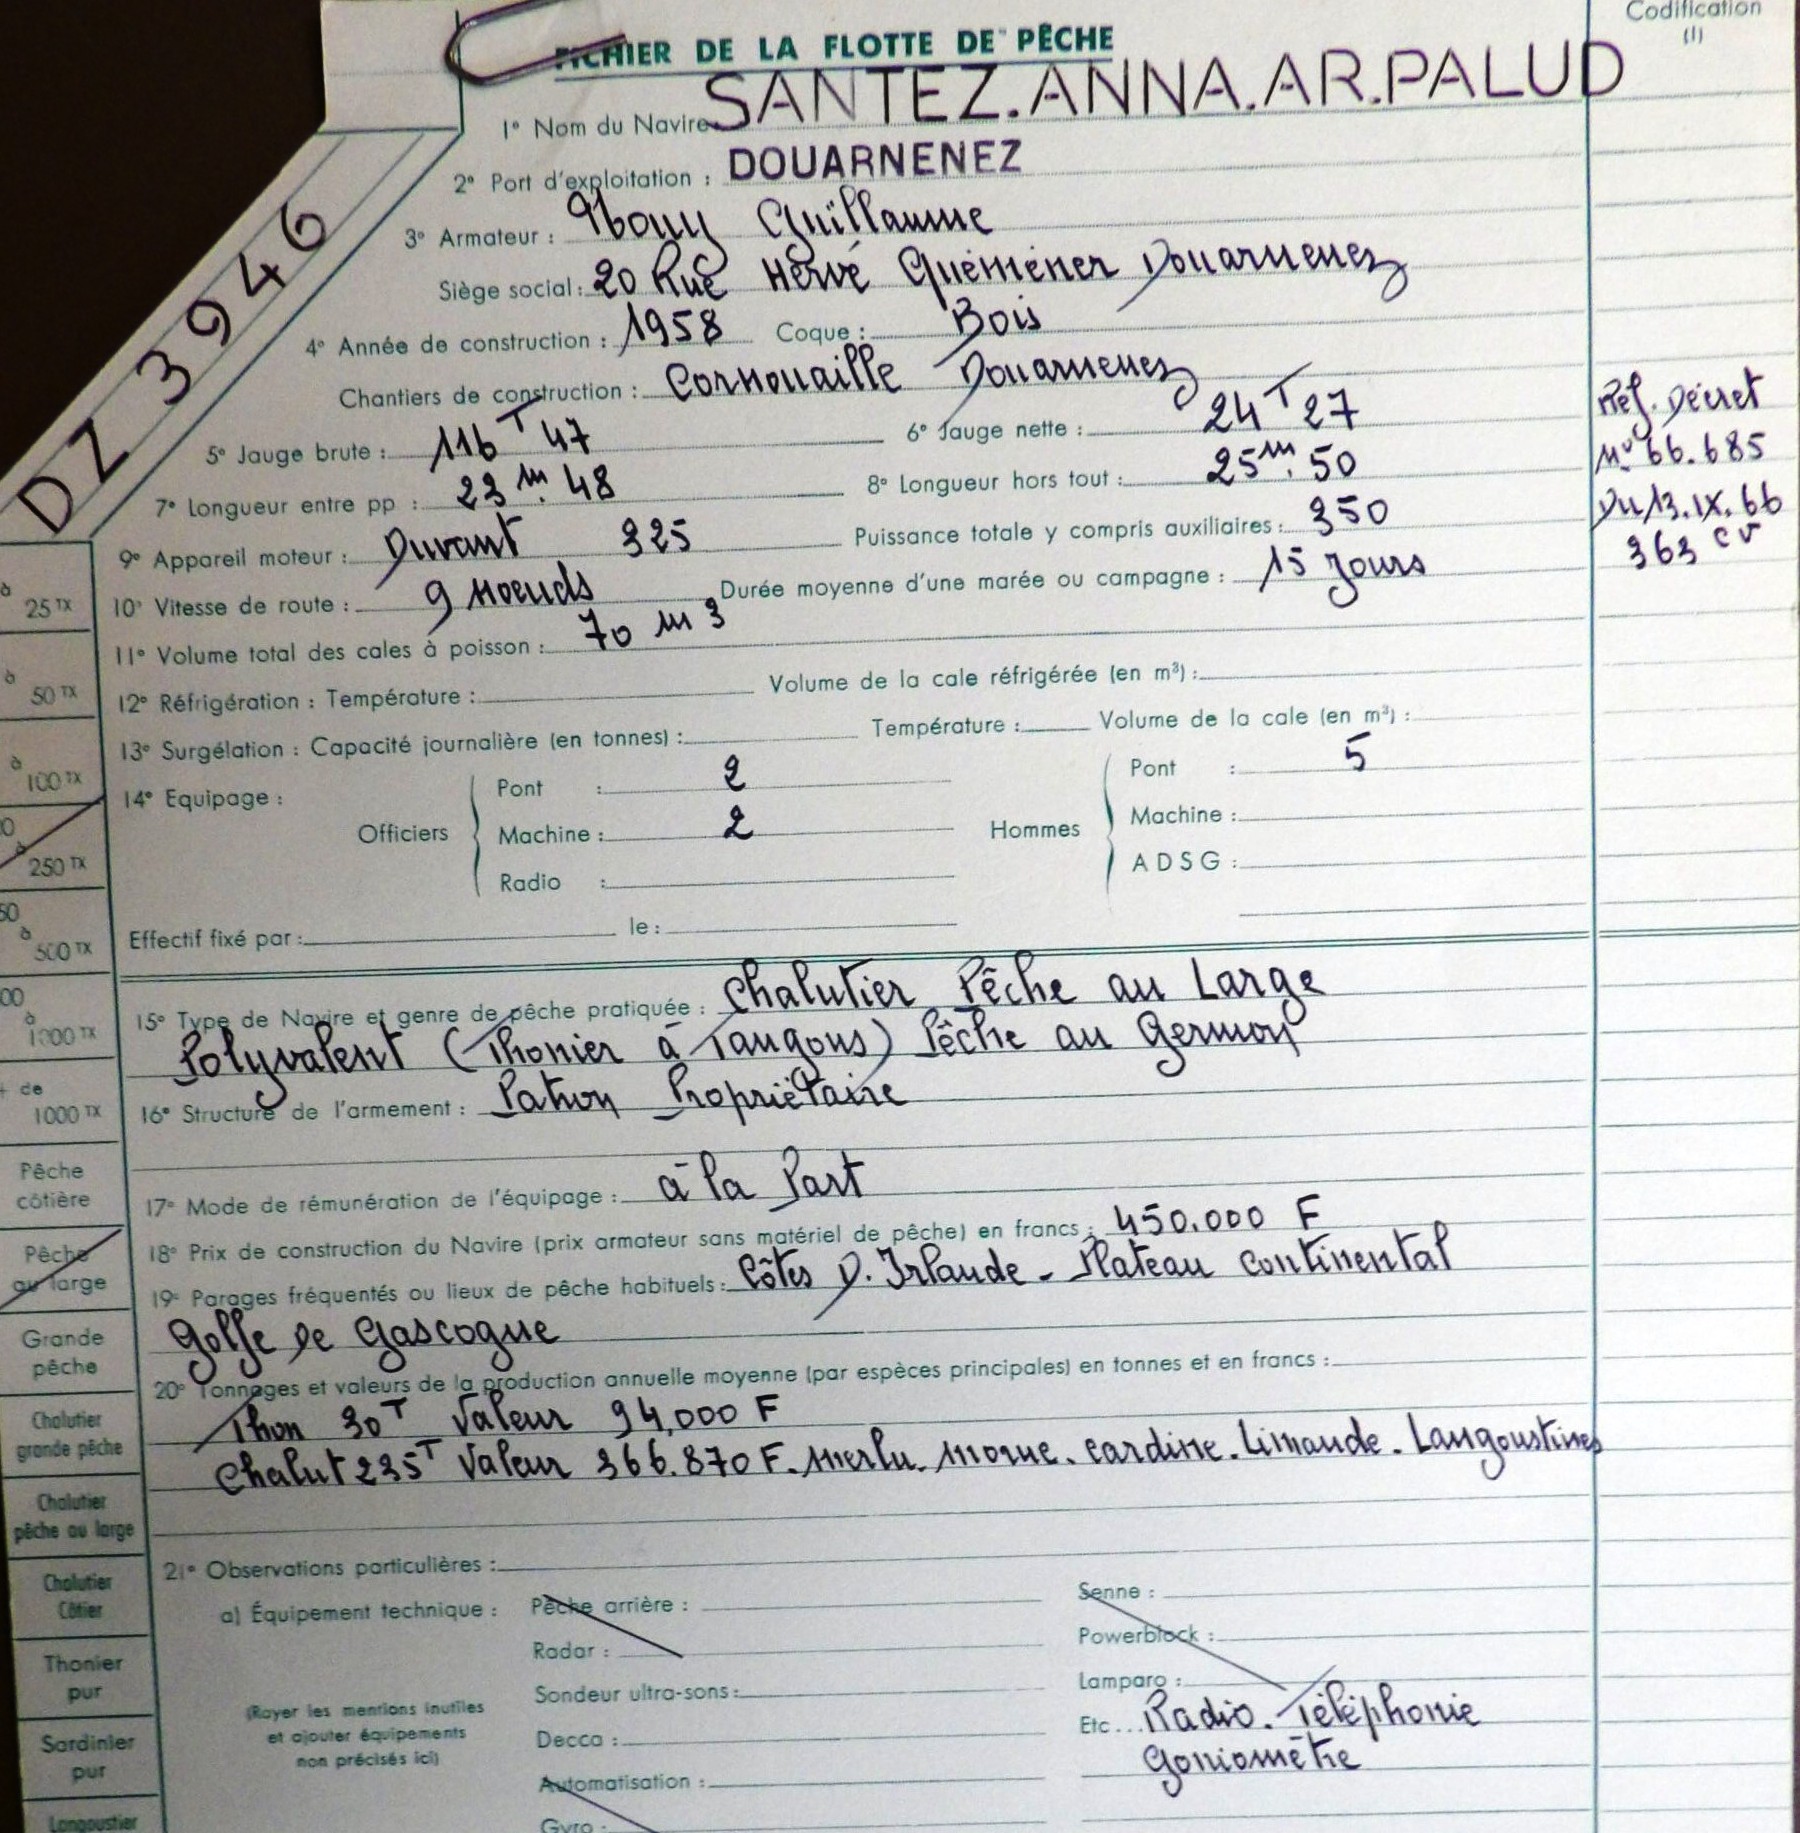 Codification
(1)
FICHIER DE LA FLOTTE DE PÊCHE
1° Nom du Navire SANTEZ.ANNA.AR.PALUD
2° Port d'exploitation : DOUARNENEZ
3° Armateur : Guillaume
Siège social : 20 Rue Hervé Quéméner Douarnenez
4° Année de construction : 1958 Coque : Bois
Chantiers de construction : Cornouaille Douarnenez
5° Jauge brute : 116 T 47 6° Jauge nette : 24 T 27
7° Longueur entre pp : 23 m. 48 8° Longueur hors tout : 25 m. 50
9° Appareil moteur : Duvant 325 Puissance totale y compris auxiliaires : 350
10° Vitesse de route : 9 Noeuds Durée moyenne d'une marée ou campagne : 15 Jours
11° Volume total des cales à poisson : 70 m3
12° Réfrigération : Température : Volume de la cale réfrigérée (en m³) :
13° Surgélation : Capacité journalière (en tonnes) : Température : Volume de la cale (en m³) :
14° Equipage :
Officiers
Pont : 2
Machine : 2
Radio :
Hommes
Pont : 5
Machine :
A D S G :
Effectif fixé par : le :
15° Type de Navire et genre de pêche pratiquée : Chalutier Pêche au Large
Polyvalent (Thonier à Tangons) Pêche au Germon
16° Structure de l'armement : Patron Propriétaire
17° Mode de rémunération de l'équipage : à la Part
18° Prix de construction du Navire (prix armateur sans matériel de pêche) en francs : 450.000 F
19° Parages fréquentés ou lieux de pêche habituels : Côtes D. Irlande - Plateau continental
Golfe de Gascogne
20° Tonnages et valeurs de la production annuelle moyenne (par espèces principales) en tonnes et en francs :
Thon 30T Valeur 94,000 F
Chalut 235T Valeur 366.870 F. Merlu. Morue. Cardine. Limande. Langoustines
21° Observations particulières :
a) Équipement technique :
(Rayer les mentions inutiles
et ajouter équipements
non précisés ici)
Pêche arrière :
Radar :
Sondeur ultra-sons :
Decca :
Automatisation :
Gyro :
Senne :
Powerblock :
Lamparo :
Etc... Radio. Téléphonie
Goniomètre
Réf. Décret
N° 66.685
Du 13.IX.66
363 cv
DZ 3946
à
25 TX
à
50 TX
à
100 TX
à
250 TX
à
500 TX
à
1000 TX
+ de
1000 TX
Pêche
côtière
Pêche
au large
Grande
pêche
Chalutier
grande pêche
Chalutier
pêche au large
Chalutier
Côtier
Thonier
pur
Sardinier
pur
Langoustier